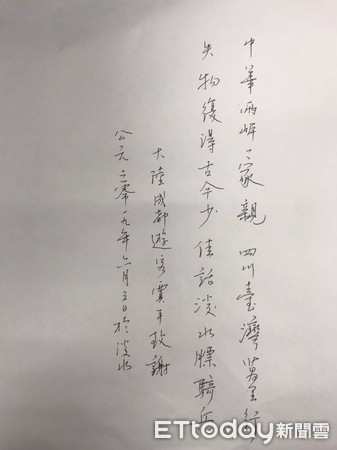 中華兩岸一家親 四川臺灣
失物復得古今少 佳話淡水騎兵
大陸成都遊客賈平致謝
公元二零一九年六月三日於淡水
ETtoday新聞雲
ETtoday新聞雲